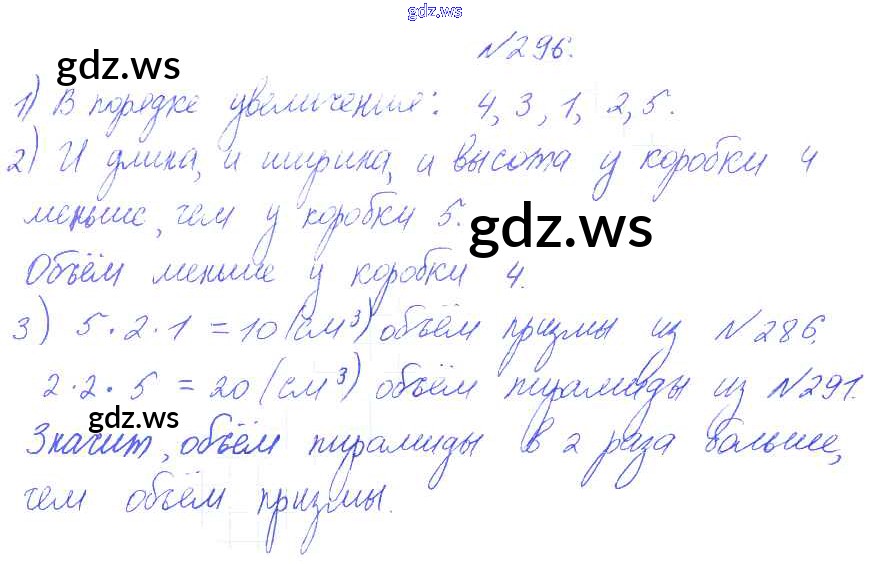 gdz.ws
№296.
gdz.ws
1) В порядке увеличение: 4, 3, 1, 2, 5.
2) И длина, и ширина, и высота у коробки 4
меньше, чем у коробки 5.
gdz.ws
Объём меньше у коробки 4.
3) 5·2·1 = 10 (см³) объём призмы из №286.
2·2·5 = 20 (см³) объём пирамиды из №291.
gdz.ws
Значит, объём пирамиды в 2 раза больше,
чем объём призмы.